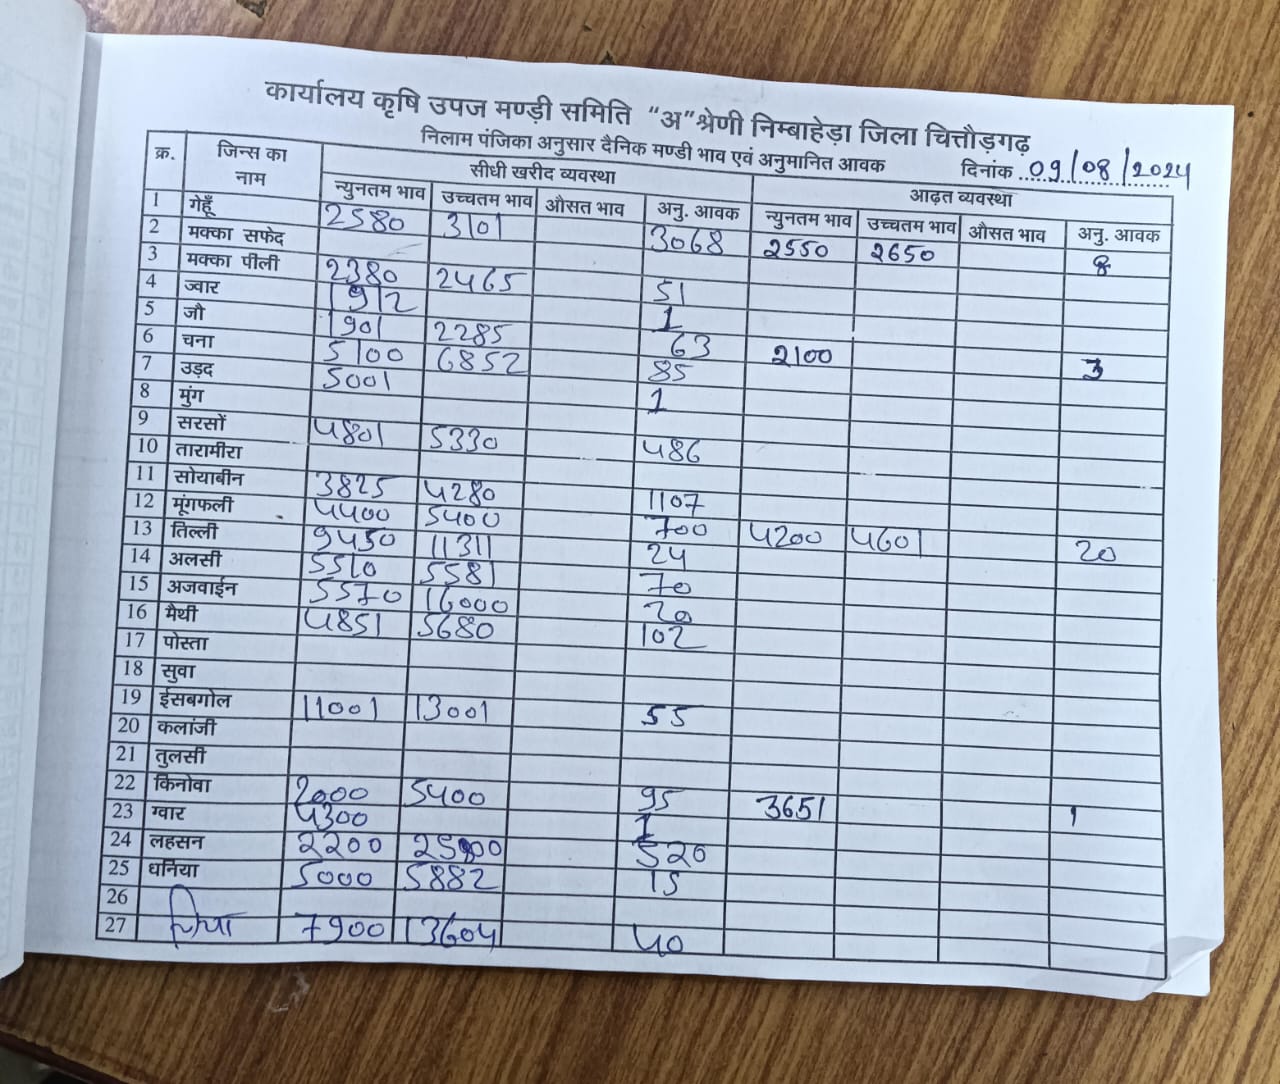 कार्यालय कृषि उपज मण्डी समिति "अ" श्रेणी निम्बाहेड़ा जिला चित्तौड़गढ़
निलाम पंजिका अनुसार दैनिक मण्डी भाव एवं अनुमानित आवक दिनांक 09/08/2024
क्र. जिन्स का नाम सीधी खरीद व्यवस्था आढ़त व्यवस्था
न्युनतम भाव उच्चतम भाव औसत भाव अनु. आवक न्युनतम भाव उच्चतम भाव औसत भाव अनु. आवक
1 गेहूँ 2580 3101 3068 2550 2650 8
2 मक्का सफेद
3 मक्का पीली 2380 2465 51
4 ज्वार 1912 1
5 जौ 1901 2285 63 2100 3
6 चना 5100 6852 85
7 उड़द 5001 1
8 मुंग
9 सरसों 4801 5330 486
10 तारामीरा
11 सोयाबीन 3825 4280 1107
12 मूंगफली 4400 5400 700 4200 4601 20
13 तिल्ली 9450 11311 24
14 अलसी 5510 5581 70
15 अजवाईन 5570 16000 20
16 मैथी 4851 5680 102
17 पोस्ता
18 सुवा
19 ईसबगोल 11001 13001 55
20 कलांजी
21 तुलसी
22 किनोवा 2000 5400 95 3651 1
23 ग्वार 4300 1
24 लहसन 2200 520
25 धनिया 5000 5882 15
26
27 7900 13604 40